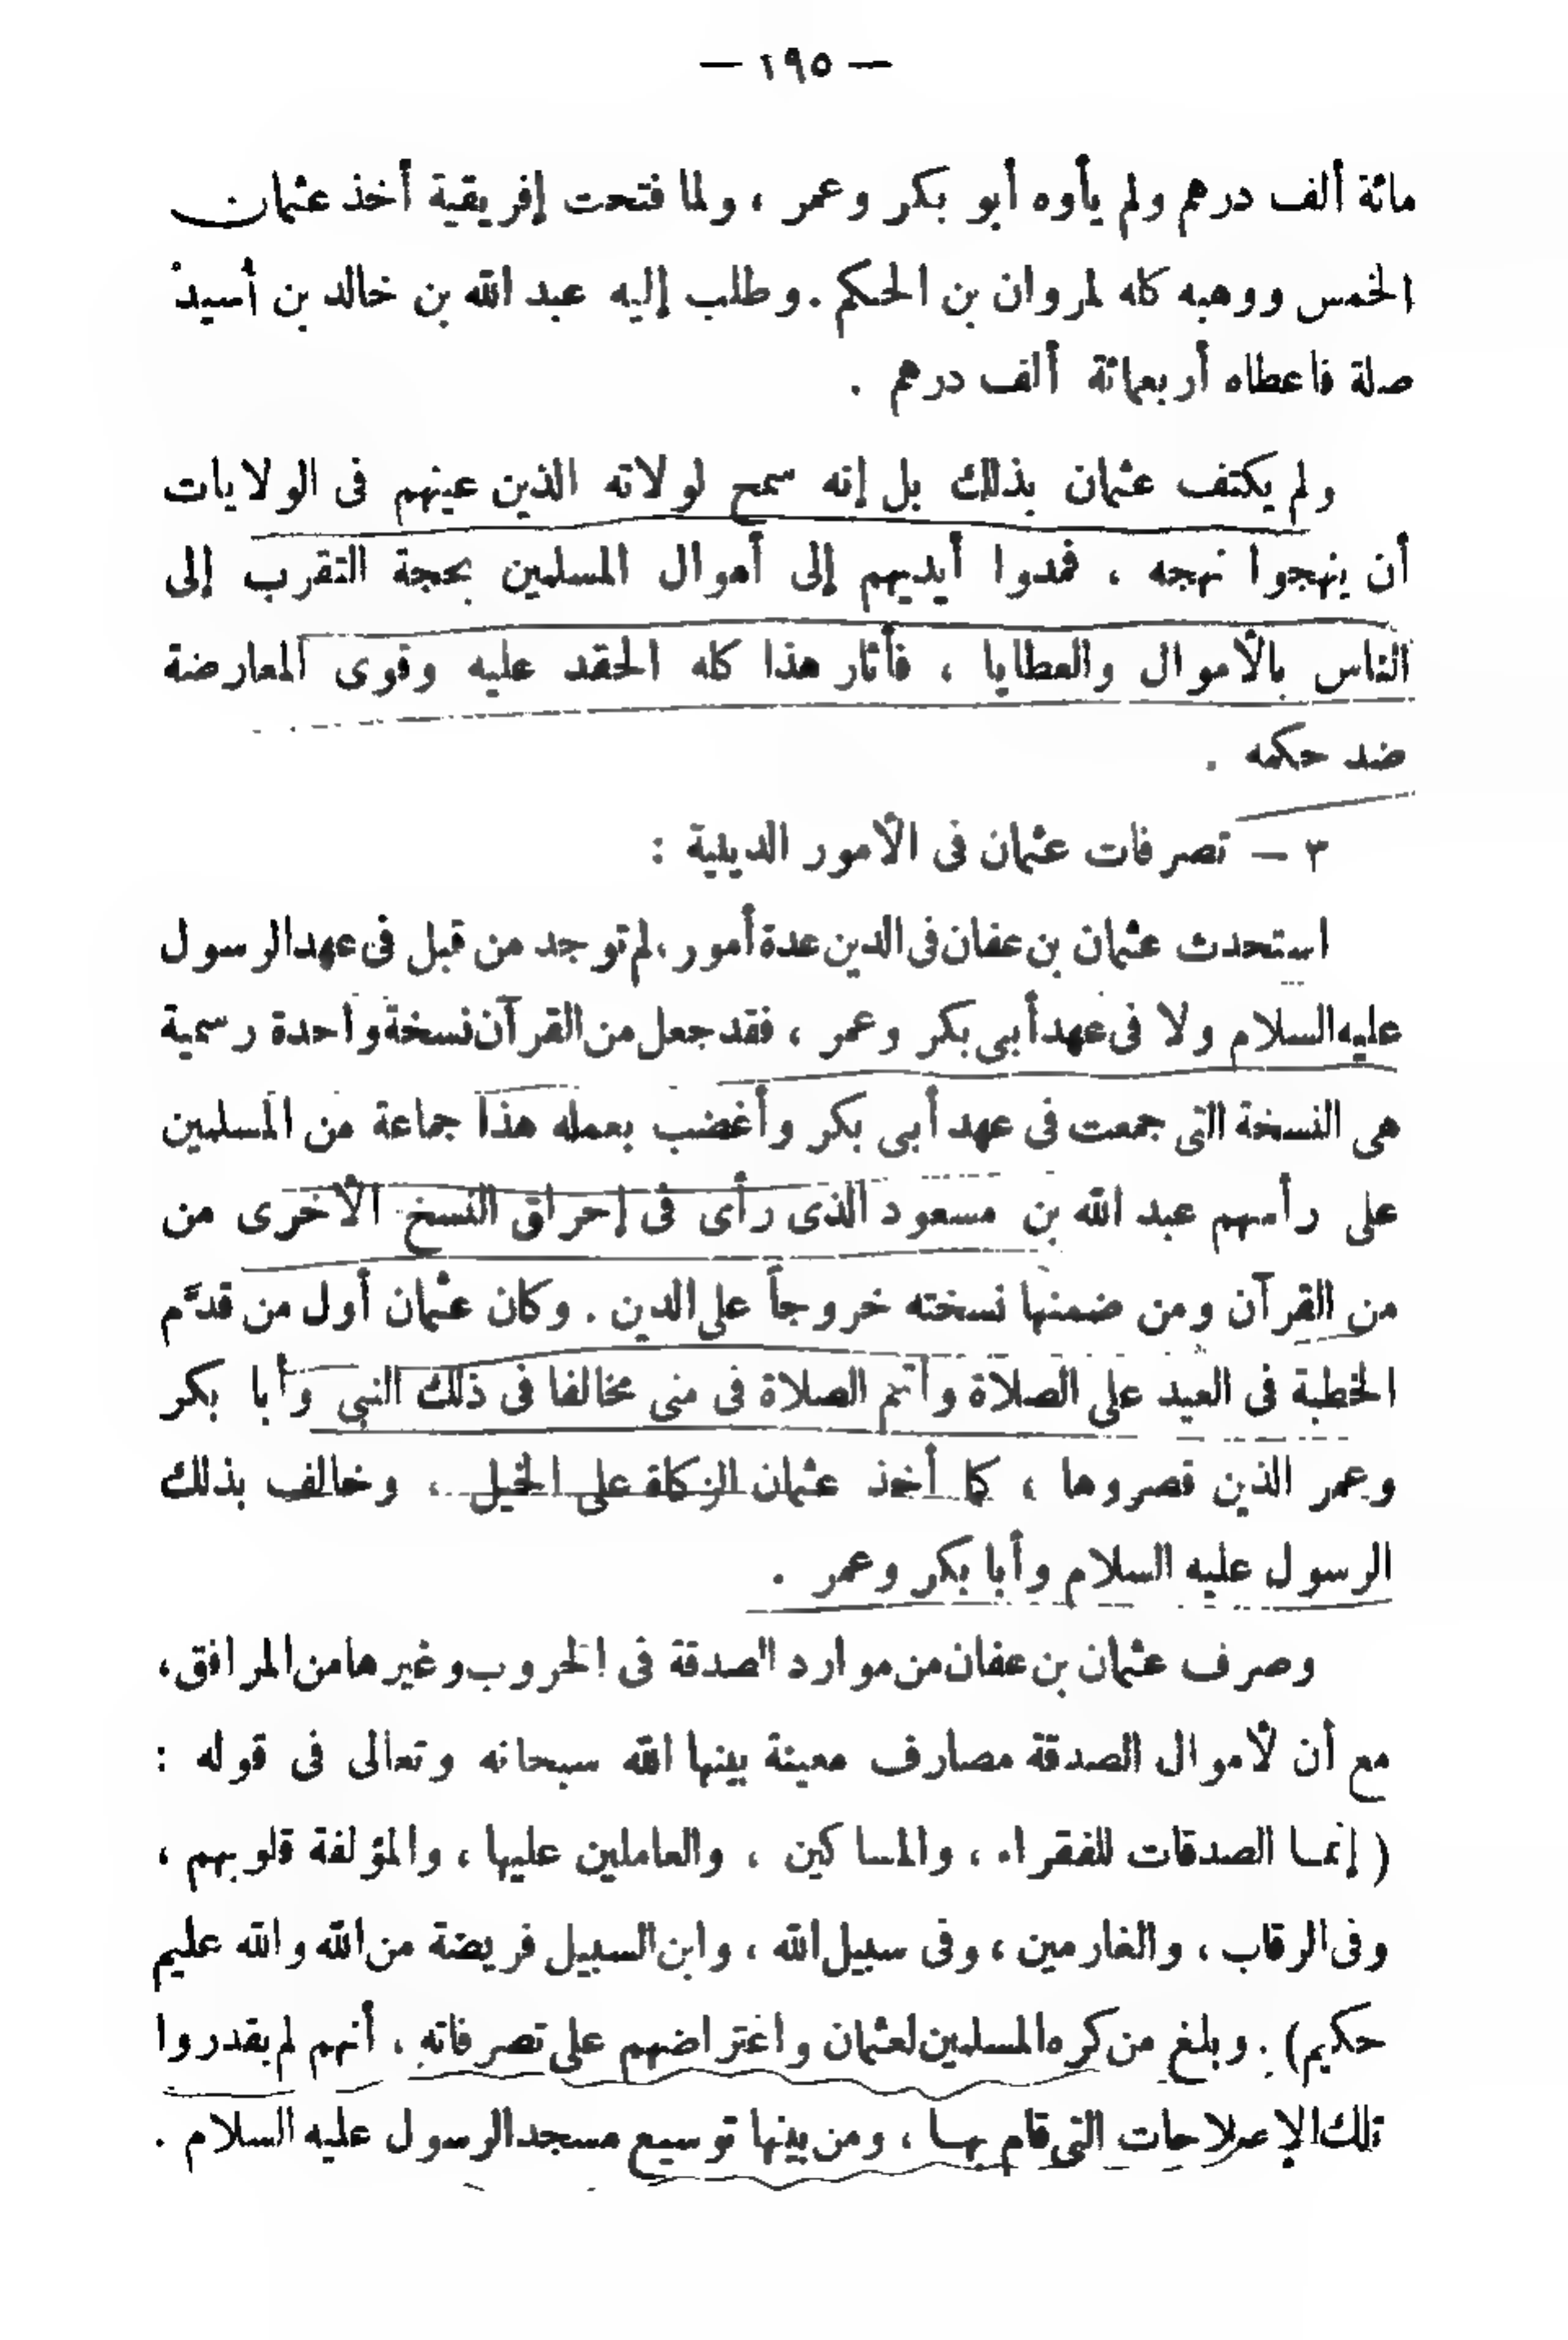 — ١٩٥ —
مائة ألف درهم ولم يأوه أبو بكر وعمر ، ولما فتحت إفريقية أخذ عثمان
الخمس ووهبه كله لمروان بن الحكم . وطلب إليه عبد الله بن خالد بن أسيد
صلة فاعطاه أربعمائة ألف درهم .
ولم يكتف عثمان بذلك بل إنه سمح لولاته الذين عينهم فى الولايات
أن ينهجوا نهجه ، فمدوا أيديهم إلى أموال المسلمين بحجة التقرب إلى
الناس بالأموال والعطايا ، فأثار هذا كله الحقد عليه وقوى المعارضة
ضد حكمه .
٣ — تصرفات عثمان فى الأمور الدينية :
استحدث عثمان بن عفان فى الدين عدة أمور ، لم توجد من قبل فى عهد الرسول
عليه السلام ولا فى عهد أبى بكر وعمر ، فقد جعل من القرآن نسخة واحدة رسمية
هى النسخة التى جمعت فى عهد أبى بكر وأغضب بعمله هذا جماعة من المسلمين
على رأسهم عبد الله بن مسعود الذى رأى فى إحراق النسخ الأخرى من
من القرآن ومن ضمنها نسخته خروجاً على الدين . وكان عثمان أول من قدَّم
الخطبة فى العيد على الصلاة وأتم الصلاة فى منى مخالفا فى ذلك النبى وأبا بكر
وعمر الذين قصروها ، كما أخذ عثمان الزكاة على الخيل ، وخالف بذلك
الرسول عليه السلام وأبا بكر وعمر .
وصرف عثمان بن عفان من موارد الصدقة فى الحروب وغيرها من المرافق ،
مع أن لأموال الصدقة مصارف معينة بينها الله سبحانه وتعالى فى قوله :
( إنما الصدقات للفقراء ، والمساكين ، والعاملين عليها ، والمؤلفة قلوبهم ،
وفى الرقاب ، والغارمين ، وفى سبيل الله ، وابن السبيل فريضة من الله والله عليم
حكيم ) . وبلغ من كره المسلمين لعثمان واعتراضهم على تصرفاته ، أنهم لم يقدروا
تلك الإصلاحات التى قام بها ، ومن بينها توسيع مسجد الرسول عليه السلام .